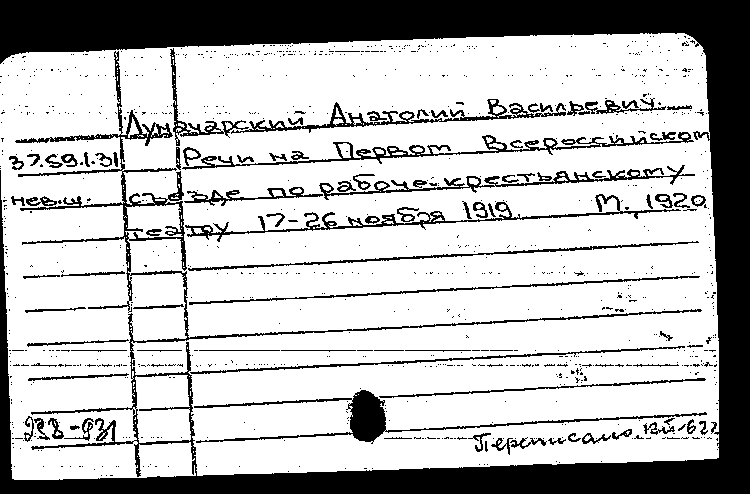 Луначарский, Анатолий Васильевич.
37.59.1.31 Речи на Первом Всероссийском
нев.ш. съезде по рабоче-крестьянскому
театру 17-26 ноября 1919. М., 1920
938-931
Переписано.